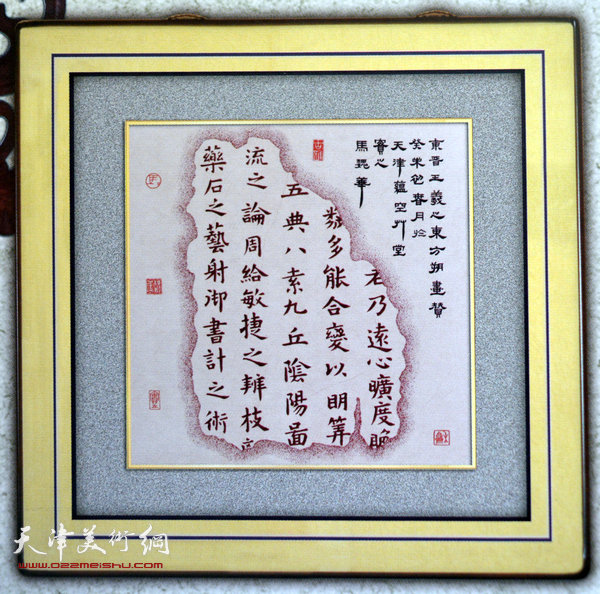 東晉王羲之東方朔畫贊
癸未春月於
天津蘊空艸堂
馬華
若乃遠心曠度瞻
類多能合變以明筭
五典八索九丘陰陽圖
流之論周給敏捷之辯枝
藥石之藝射御書計之術
天津美術網
www.022meishu.com